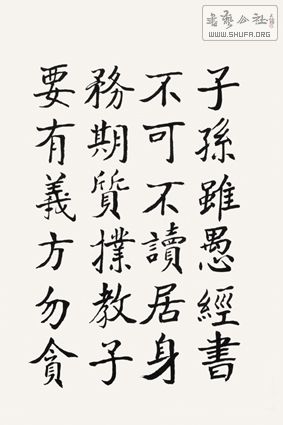 書藝公社
WWW.SHUFA.ORG
子孫雖愚經書
不可不讀居身
務期質撲教子
要有義方勿貪